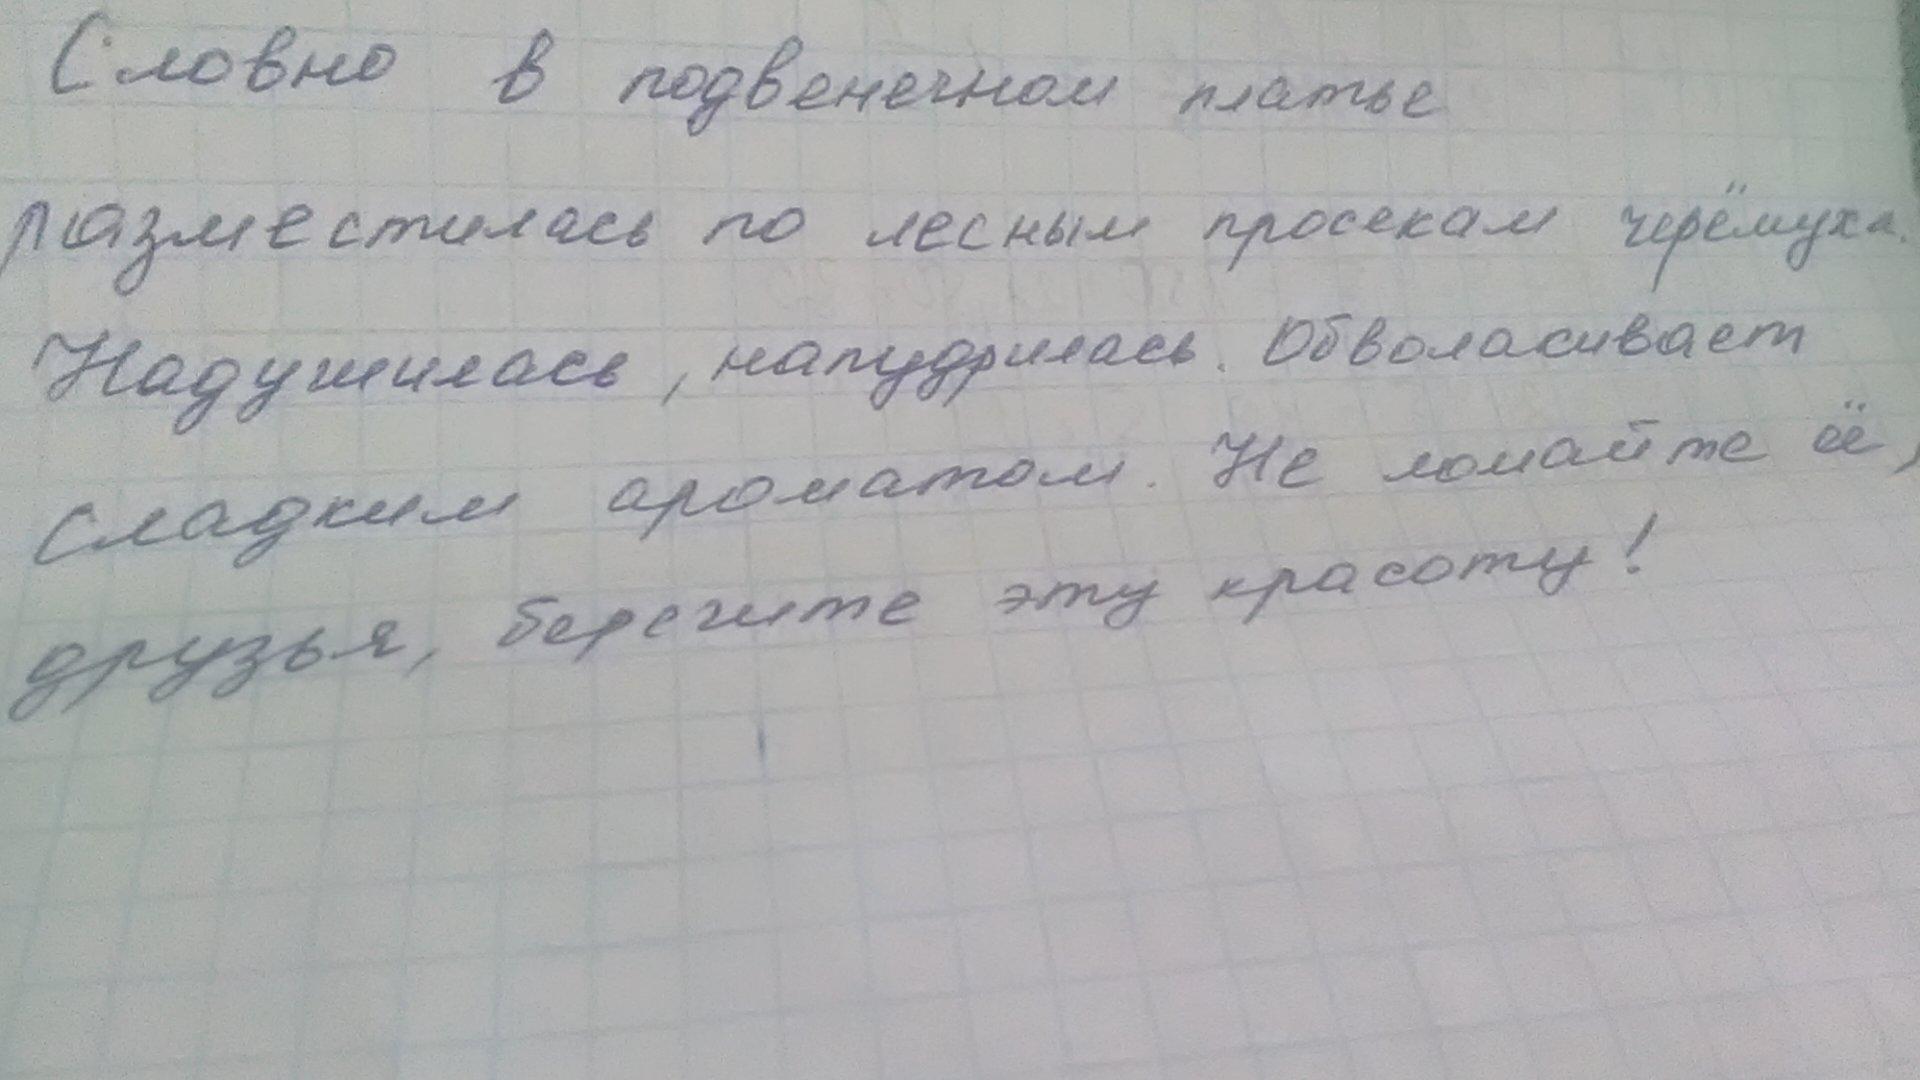 Словно в подвенечном платье
разместилась по лесным просекам черёмуха.
Надушилась, напудрилась. Обволакивает
сладким ароматом. Не ломайте её,
друзья, берегите эту красоту!